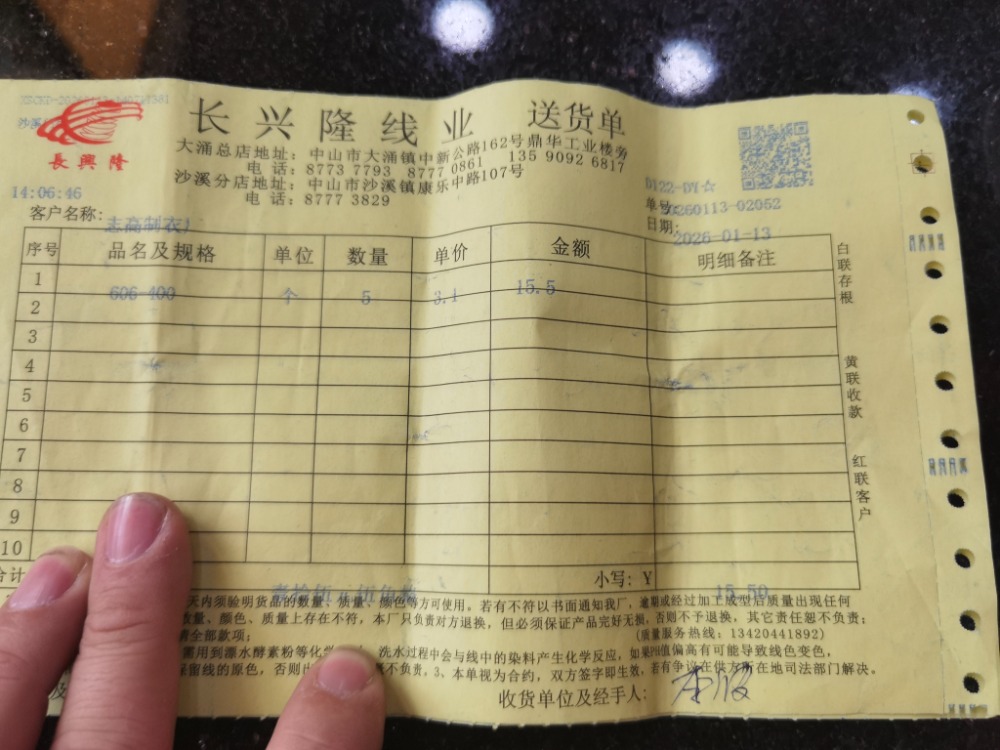 長興隆
长兴隆线业 送货单
大涌总店地址：中山市大涌镇中新公路162号鼎华工业楼旁
电话：8773 7793 8777 0861 135 9092 6817
沙溪分店地址：中山市沙溪镇康乐中路107号
电话：8777 3829
14:06:46
单号: 260113-02052
客户名称: 志高制衣
日期: 2026-01-13
序号 品名及规格 单位 数量 单价 金额 明细备注
1 606 400 个 5 3.1 15.5
2
3
4
5
6
7
8
9
10
合计 小写：¥ 15.50
白联存根
黄联收款
红联客户
天内须验明货品的数量、质量、颜色等方可使用。若有不符以书面通知我厂，逾期或经过加工成型后质量出现任何
数量、颜色、质量上存在不符，本厂只负责对方退换，但必须保证产品完好无损，否则不予退换，其它责任恕不负责；
全部款项； (质量服务热线：13420441892)
需用到漂水酵素粉等化学 洗水过程中会与线中的染料产生化学反应，如果PH值偏高有可能导致线色变色，
保留线的原色，否则 概不负责，3、本单视为合约，双方签字即生效，若有争议在供方所在地司法部门解决。
收货单位及经手人: